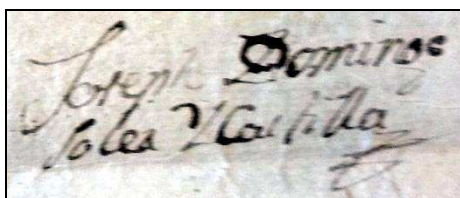 Joseph Domingo
Solea Y Castilla